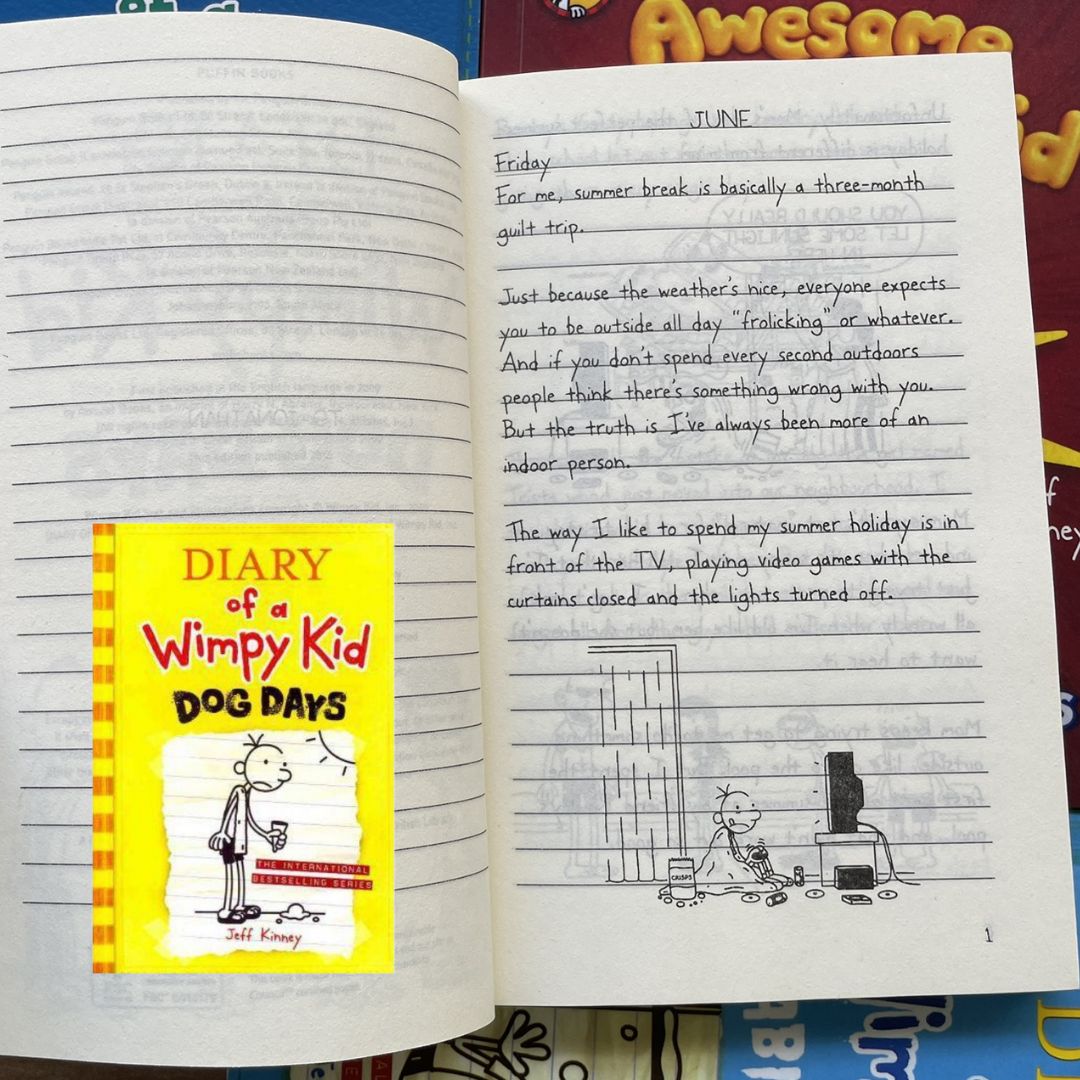 Awesome
JUNE
Friday
For me, summer break is basically a three-month
guilt trip.
Just because the weather's nice, everyone expects
you to be outside all day "frolicking" or whatever.
And if you don't spend every second outdoors
people think there's something wrong with you.
But the truth is I've always been more of an
indoor person.
The way I like to spend my summer holiday is in
front of the TV, playing video games with the
curtains closed and the lights turned off.
CRISPS
1
DIARY
of a
Wimpy Kid
DOG DAYS
THE INTERNATIONAL
BESTSELLING SERIES
Jeff Kinney